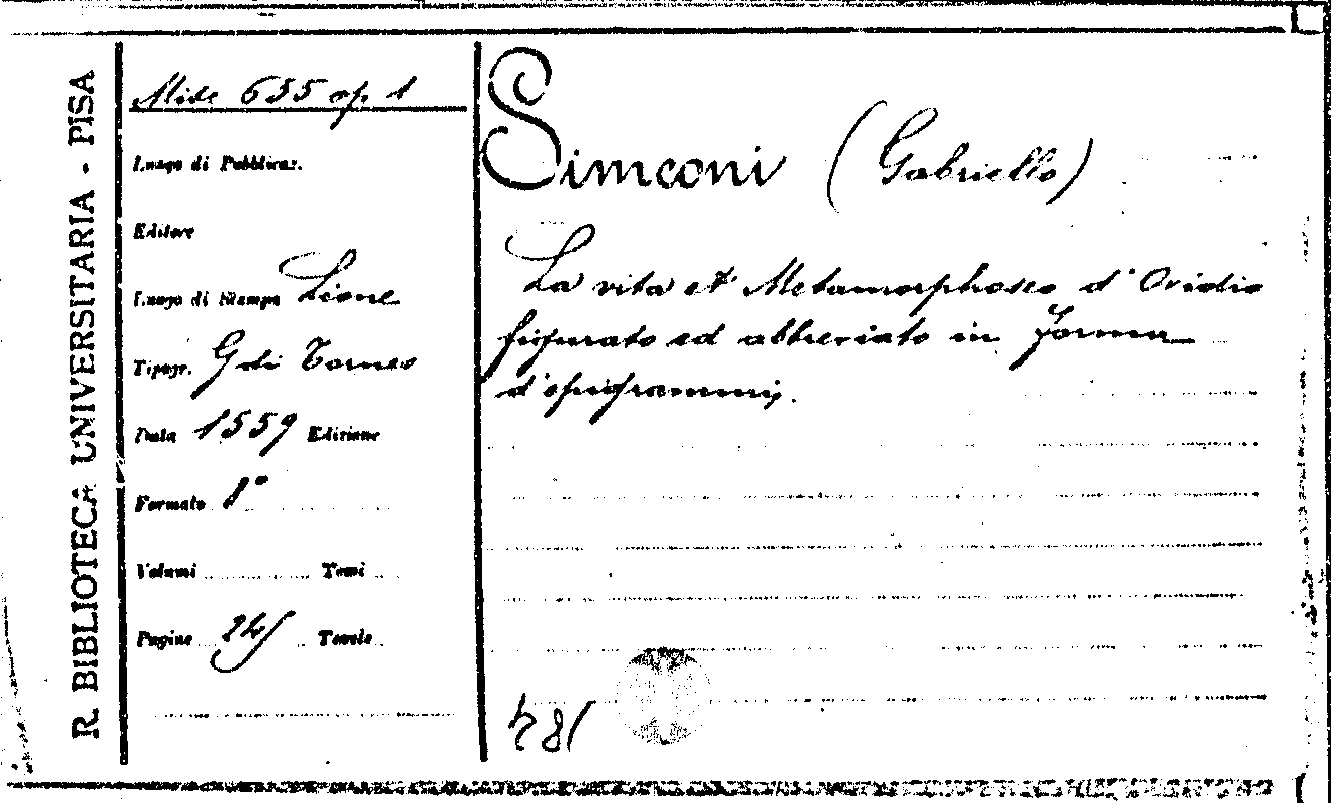 R. BIBLIOTECA UNIVERSITARIA - PISA
Misc 635 op 1
Luogo di Pubblicaz.
Editore
Luogo di Stampa Lione
Tipogr. G di Tornes
Data 1559 Edizione
Formato 8°
Volumi Tomi
Pagine 245 Tavole
Simeoni (Gabriello)
La vita et Metamorphoseo d'Ovidio
figurato ed abbreviato in forma
d'epigrammi.